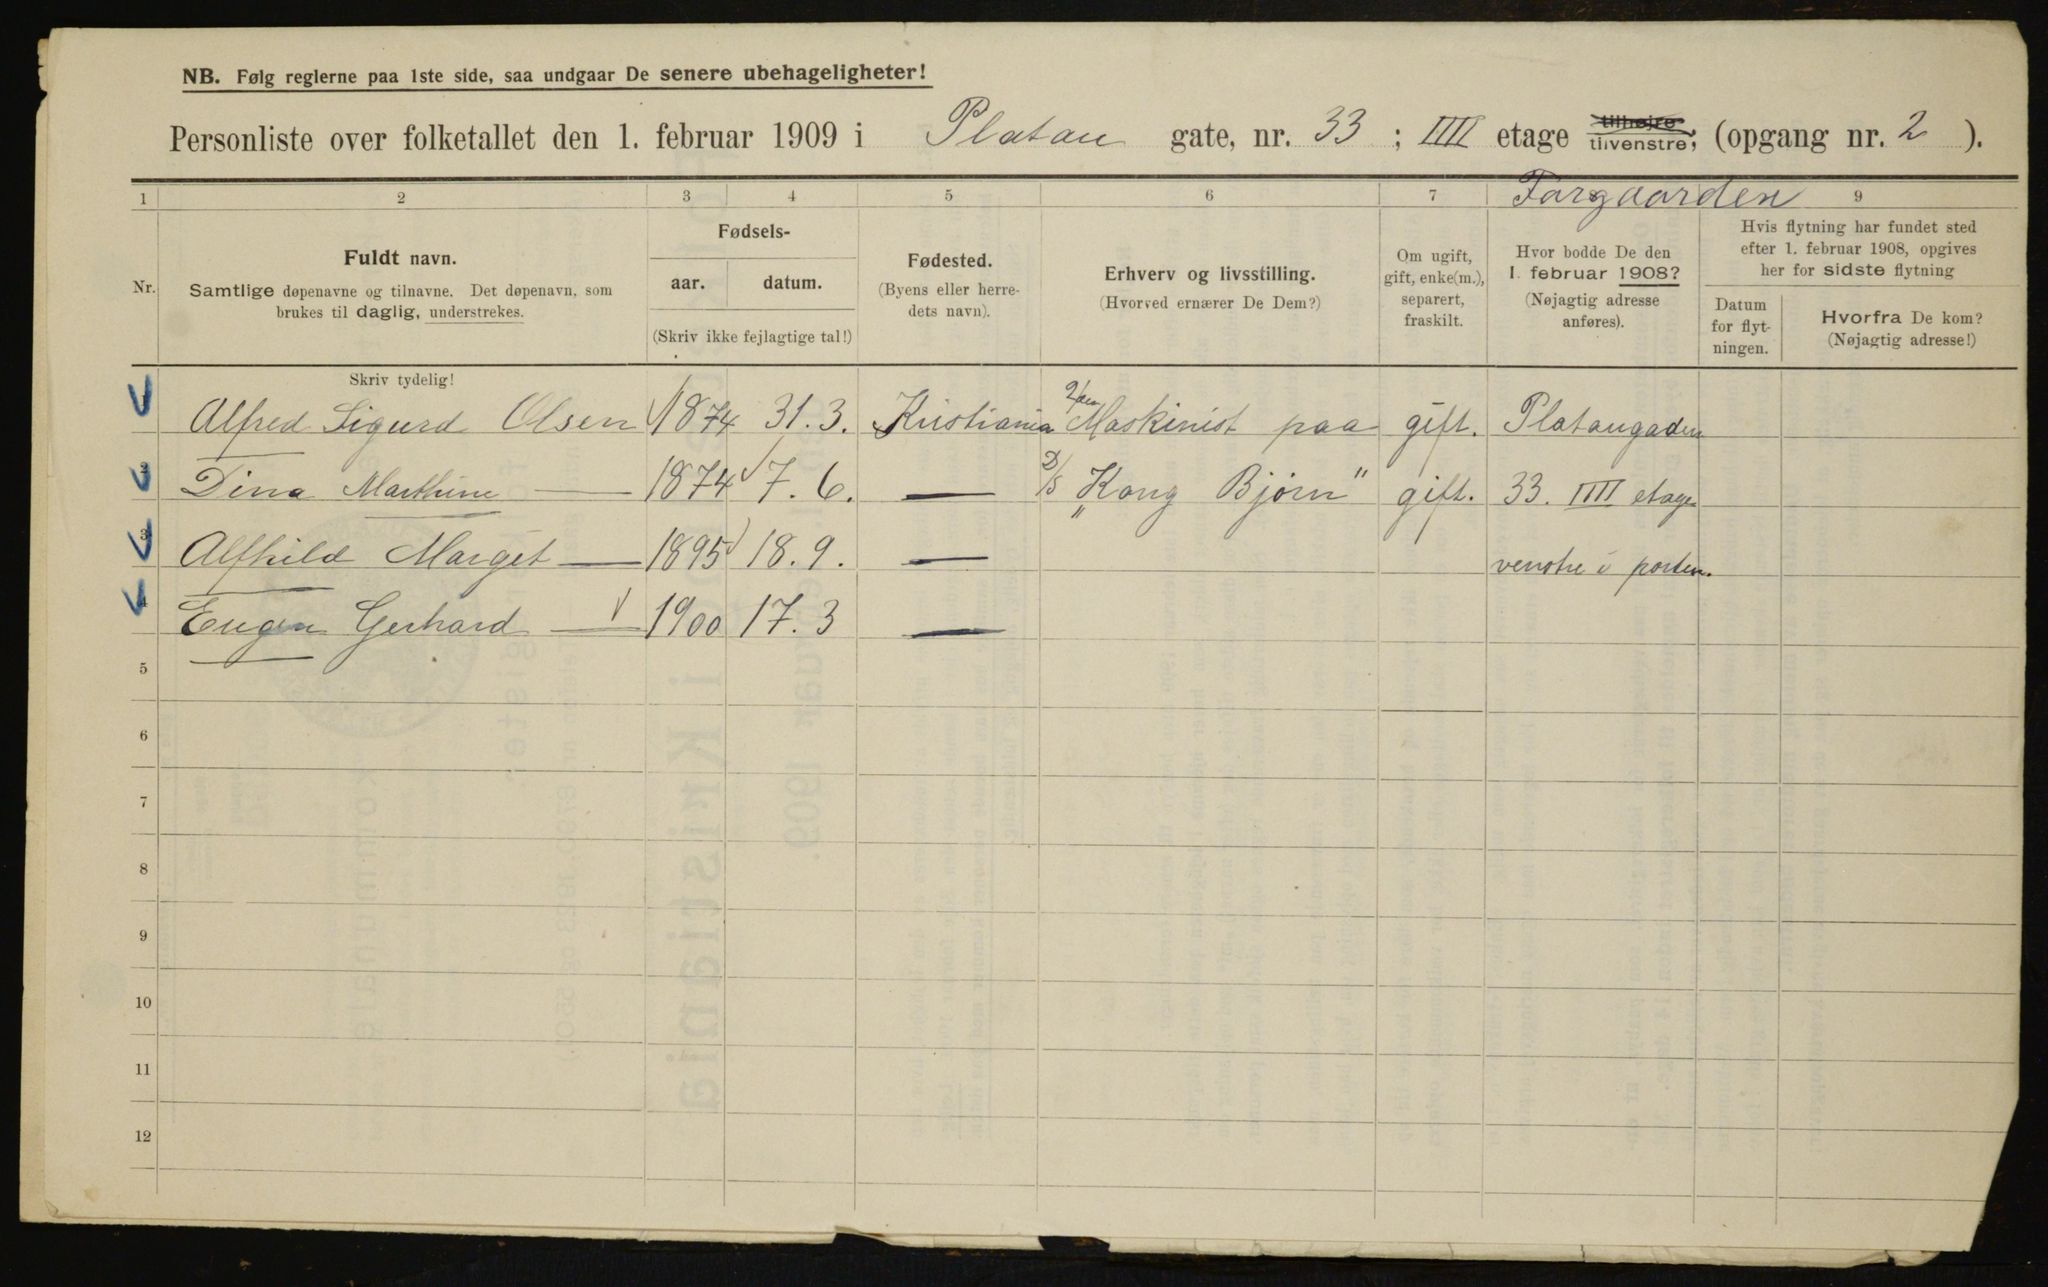 NB. Følg reglerne paa 1ste side, saa undgaar De senere ubehageligheter!
Personliste over folketallet den 1. februar 1909 i Platou gate, nr. 33 ; IIII etage tilhøjre tilvenstre, (opgang nr. 2 ).
Forgaarden
1 2 3 4 5 6 7 9
Nr.
Fuldt navn.
Samtlige døpenavne og tilnavne. Det døpenavn, som
brukes til daglig, understrekes.
Skriv tydelig!
Fødsels-
aar. datum.
(Skriv ikke fejlagtige tal!)
Fødested.
(Byens eller herre-
dets navn).
Erhverv og livsstilling.
(Hvorved ernærer De Dem?)
Om ugift,
gift, enke(m.),
separert,
fraskilt.
Hvor bodde De den
1. februar 1908?
(Nøjagtig adresse
anføres).
Hvis flytning har fundet sted
efter 1. februar 1908, opgives
her for sidste flytning
Datum
for flyt-
ningen.
Hvorfra De kom?
(Nøjagtig adresse!)
1 Alfred Sigurd Olsen 1874 31. 3. Kristiania 2den Maskinist paa gift. Platougaden
2 Dina Marthine — 1874 7. 6. — D/S „Kong Bjørn" gift. 33. IIII etage
3 Alfhild Marget — 1895 18. 9. — venstre i porten.
4 Eugen Gerhard — 1900 17. 3 —
5
6
7
8
9
10
11
12